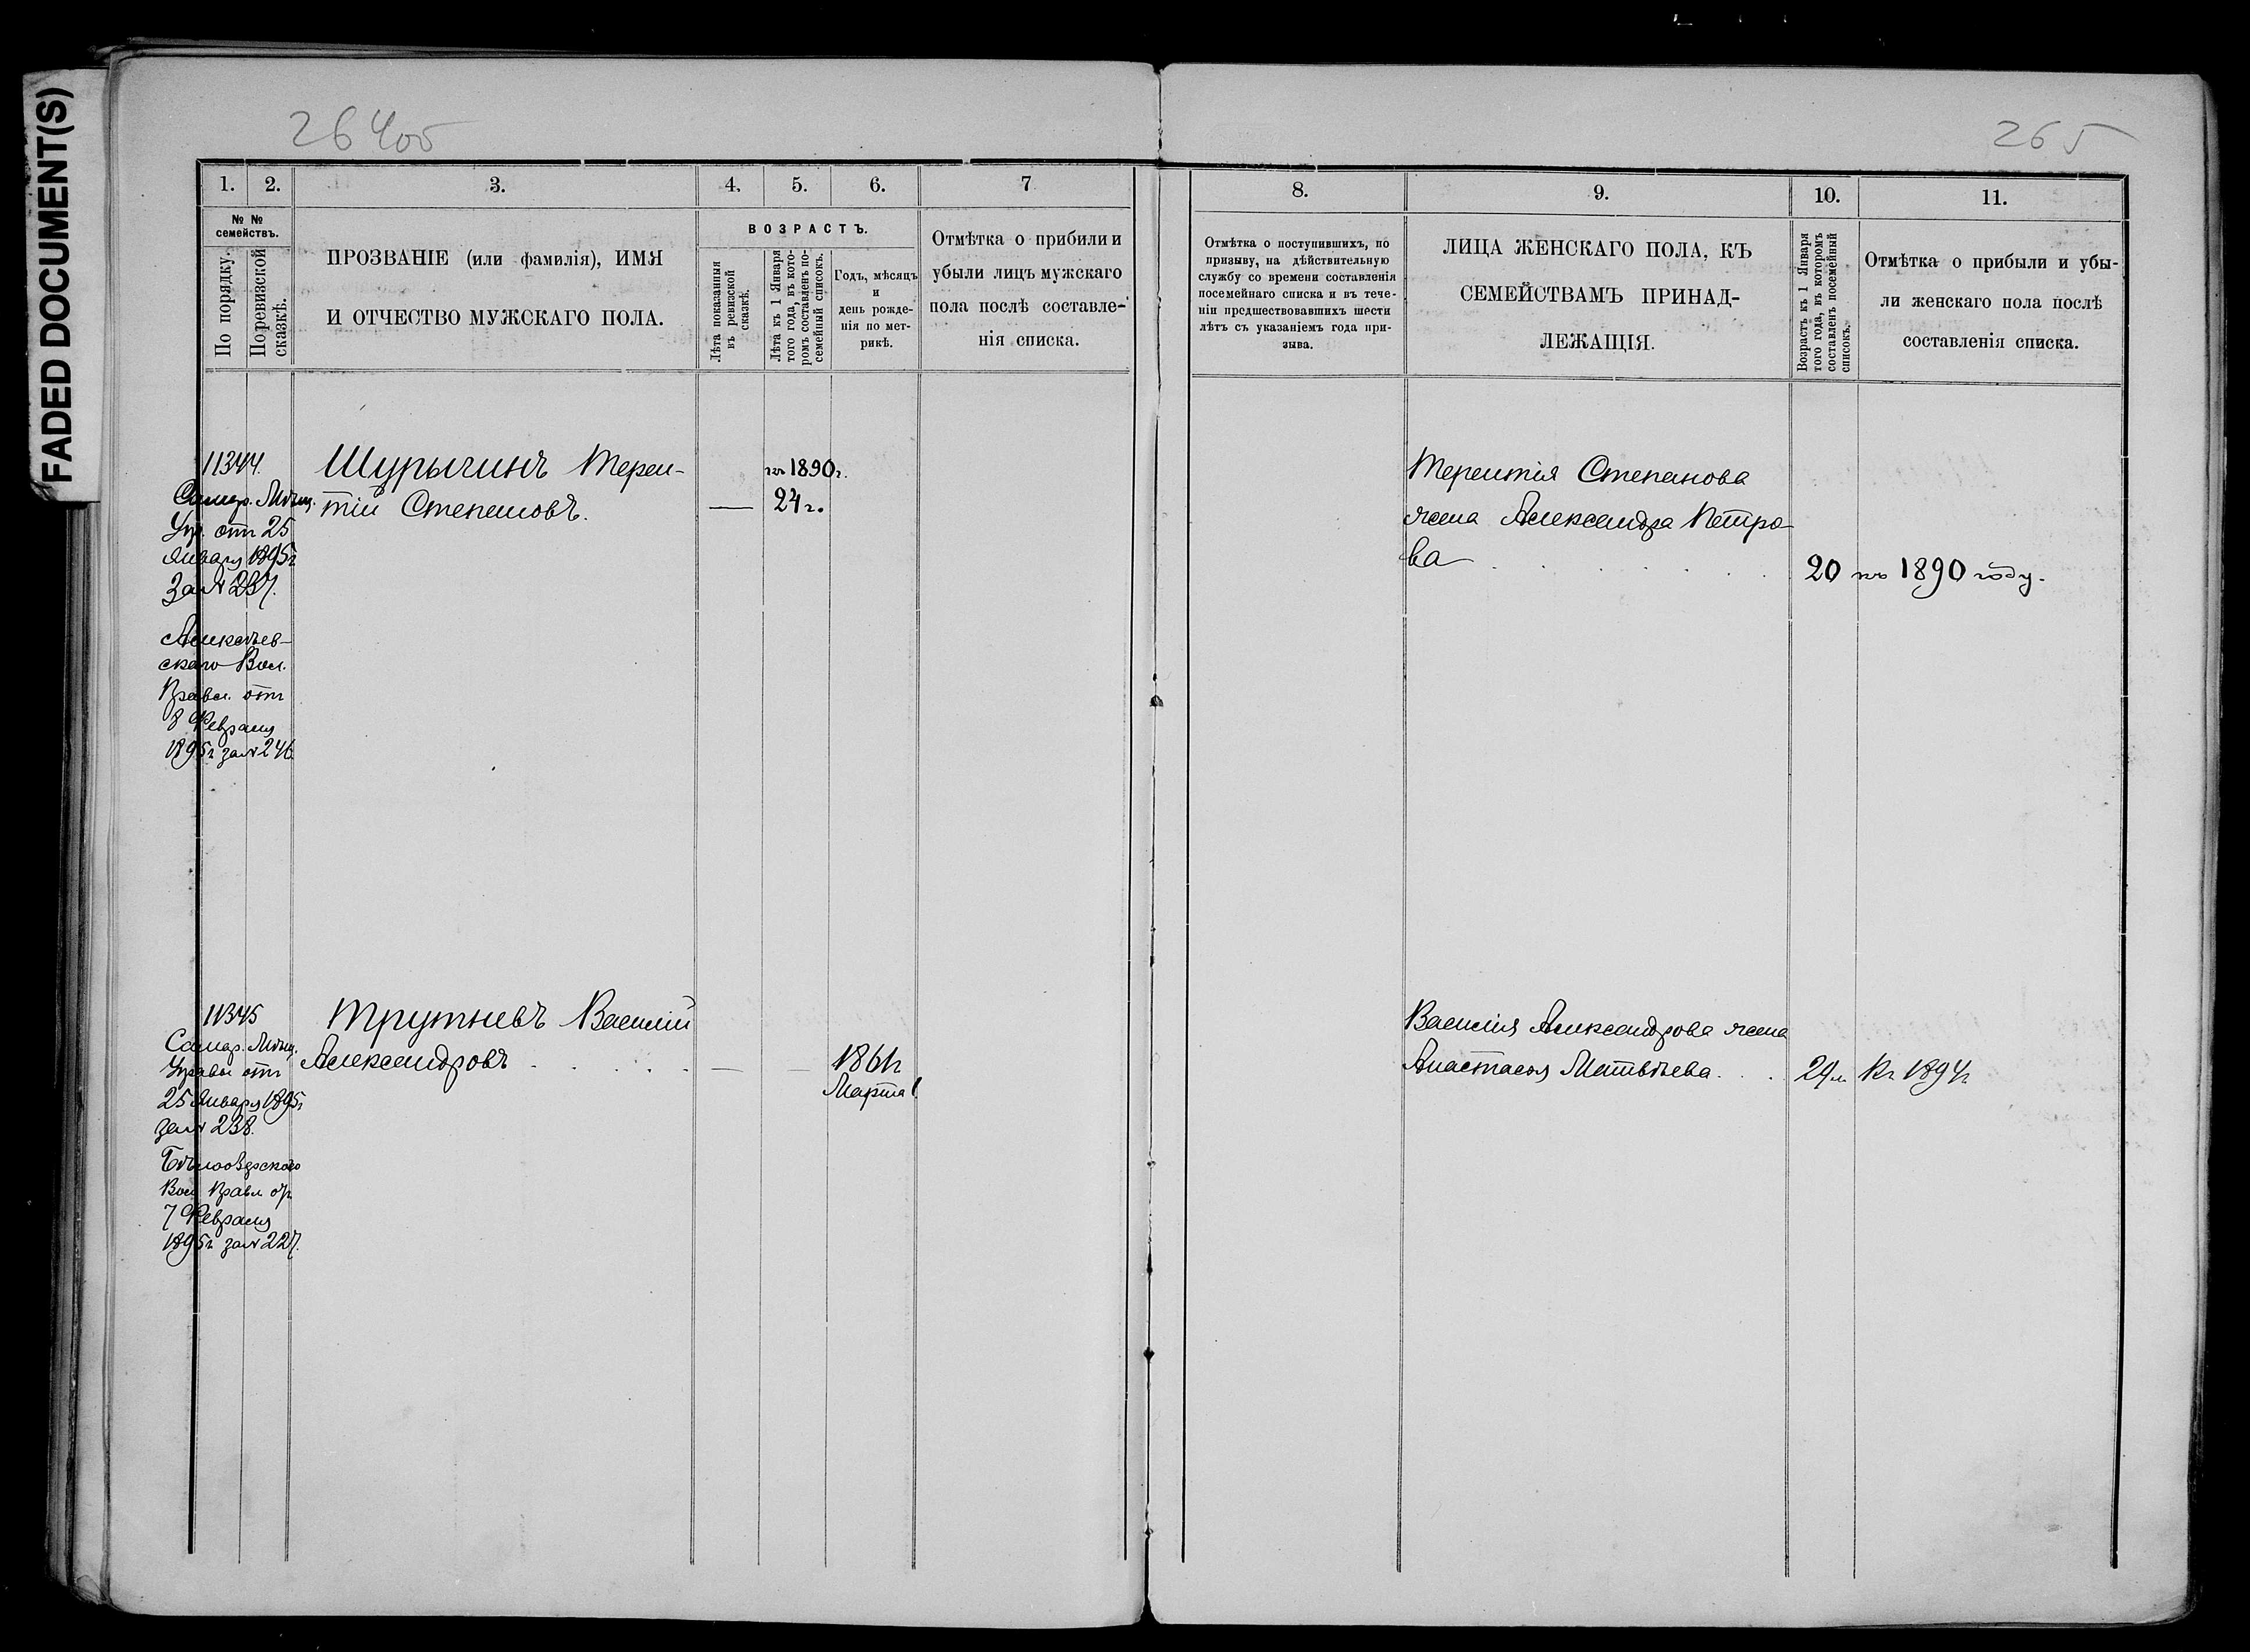 FADED DOCUMENT(S)
264об
265
1. 2. 3. 4. 5. 6. 7
№ №
семействъ.
По порядку.
По ревизской
сказкѣ.
ПРОЗВАНІЕ (или фамилія), ИМЯ
И ОТЧЕСТВО МУЖСКАГО ПОЛА.
ВОЗРАСТЪ.
Лѣта показанныя
въ ревизской
сказкѣ.
Лѣта къ 1 Января
того года, въ кото-
ромъ составленъ по-
семейный списокъ.
Годъ, мѣсяцъ
и
день рожде-
нія по мет-
рикѣ.
Отмѣтка о прибыли и
убыли лицъ мужскаго
пола послѣ составле-
нія списка.
8. 9. 10. 11.
Отмѣтка о поступившихъ, по
призыву, на дѣйствительную
службу со времени составленія
посемейнаго списка и въ тече-
ніи предшествовавшихъ шести
лѣтъ съ указаніемъ года при-
зыва.
ЛИЦА ЖЕНСКАГО ПОЛА, КЪ
СЕМЕЙСТВАМЪ ПРИНАД-
ЛЕЖАЩІЯ.
Возрастъ къ 1 Января
того года, въ которомъ
составленъ посемейный
списокъ.
Отмѣтка о прибыли и убы-
ли женскаго пола послѣ
составленія списка.
11344.
Самар. Мѣщ.
Упр. отъ 25
Января 1895г
за № 237.
Алексѣев-
скаго Вол.
Правл. отъ
8 Февраля
1895г за № 246.
Шурыгинъ Терен-
тій Степановъ.
—
къ 1890г.
24 г.
Терентія Степанова
жена Александра Петро-
ва
20 къ 1890 году.
11345
Самар. Мѣщ.
Управы отъ
25 Января 1895г
за № 238.
Бѣлоозерскаго
Вол. Правл. от
7 Февраля
1895г за № 227.
Трутневъ Василій
Александровъ
— —
1861г
Марта 1
Василія Александрова жена
Анастасія Матвѣева.
29 л. Къ 1894г